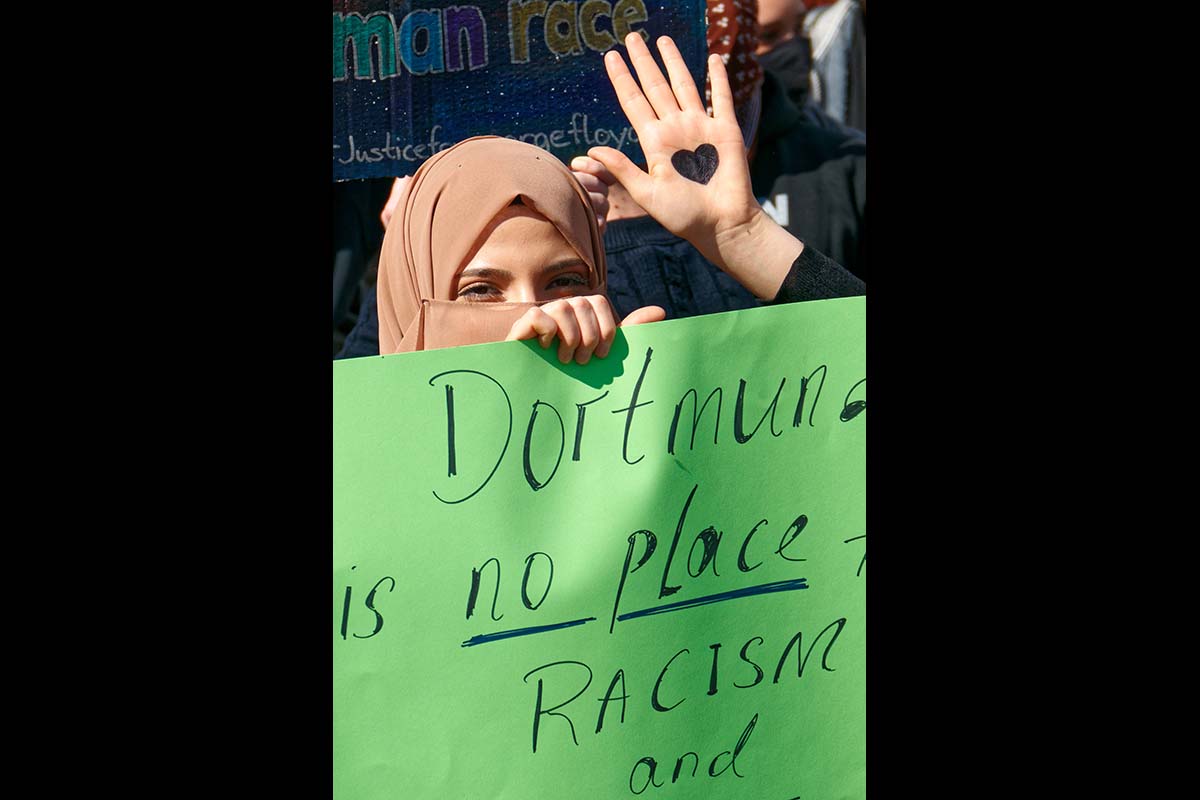 man race
Justicef rgefloy
Dortmund
is no place
RACISM
and